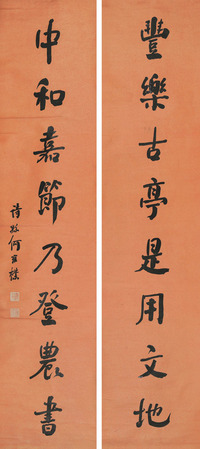 豐樂古亭是用文地
中和嘉節乃登農書
何維樸